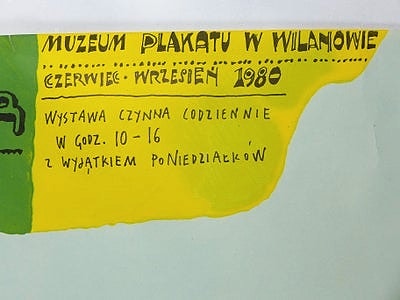 MUZEUM PLAKATU W WILANOWIE
CZERWIEC · WRZESIEŃ 1980
WYSTAWA CZYNNA CODZIENNIE
W GODZ. 10-16
Z WYJĄTKIEM PONIEDZIAŁKÓW